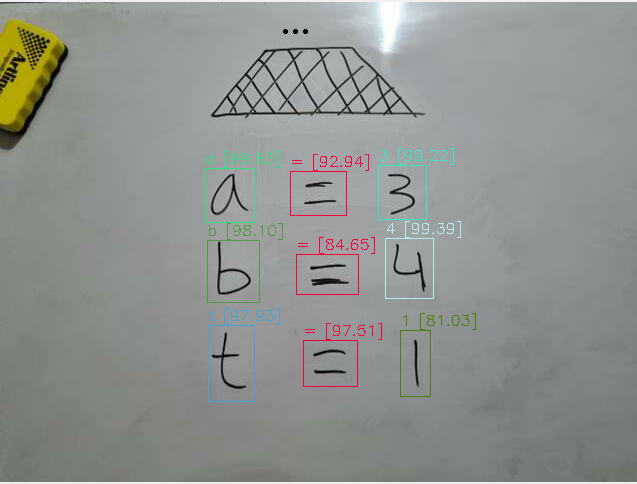 ...
Artline
= [92.94] 3 [99.22]
a = 3
b [98.10] = [84.65] 4 [99.39]
b = 4
[97.93] = [97.51] 1 [81.03]
t = 1